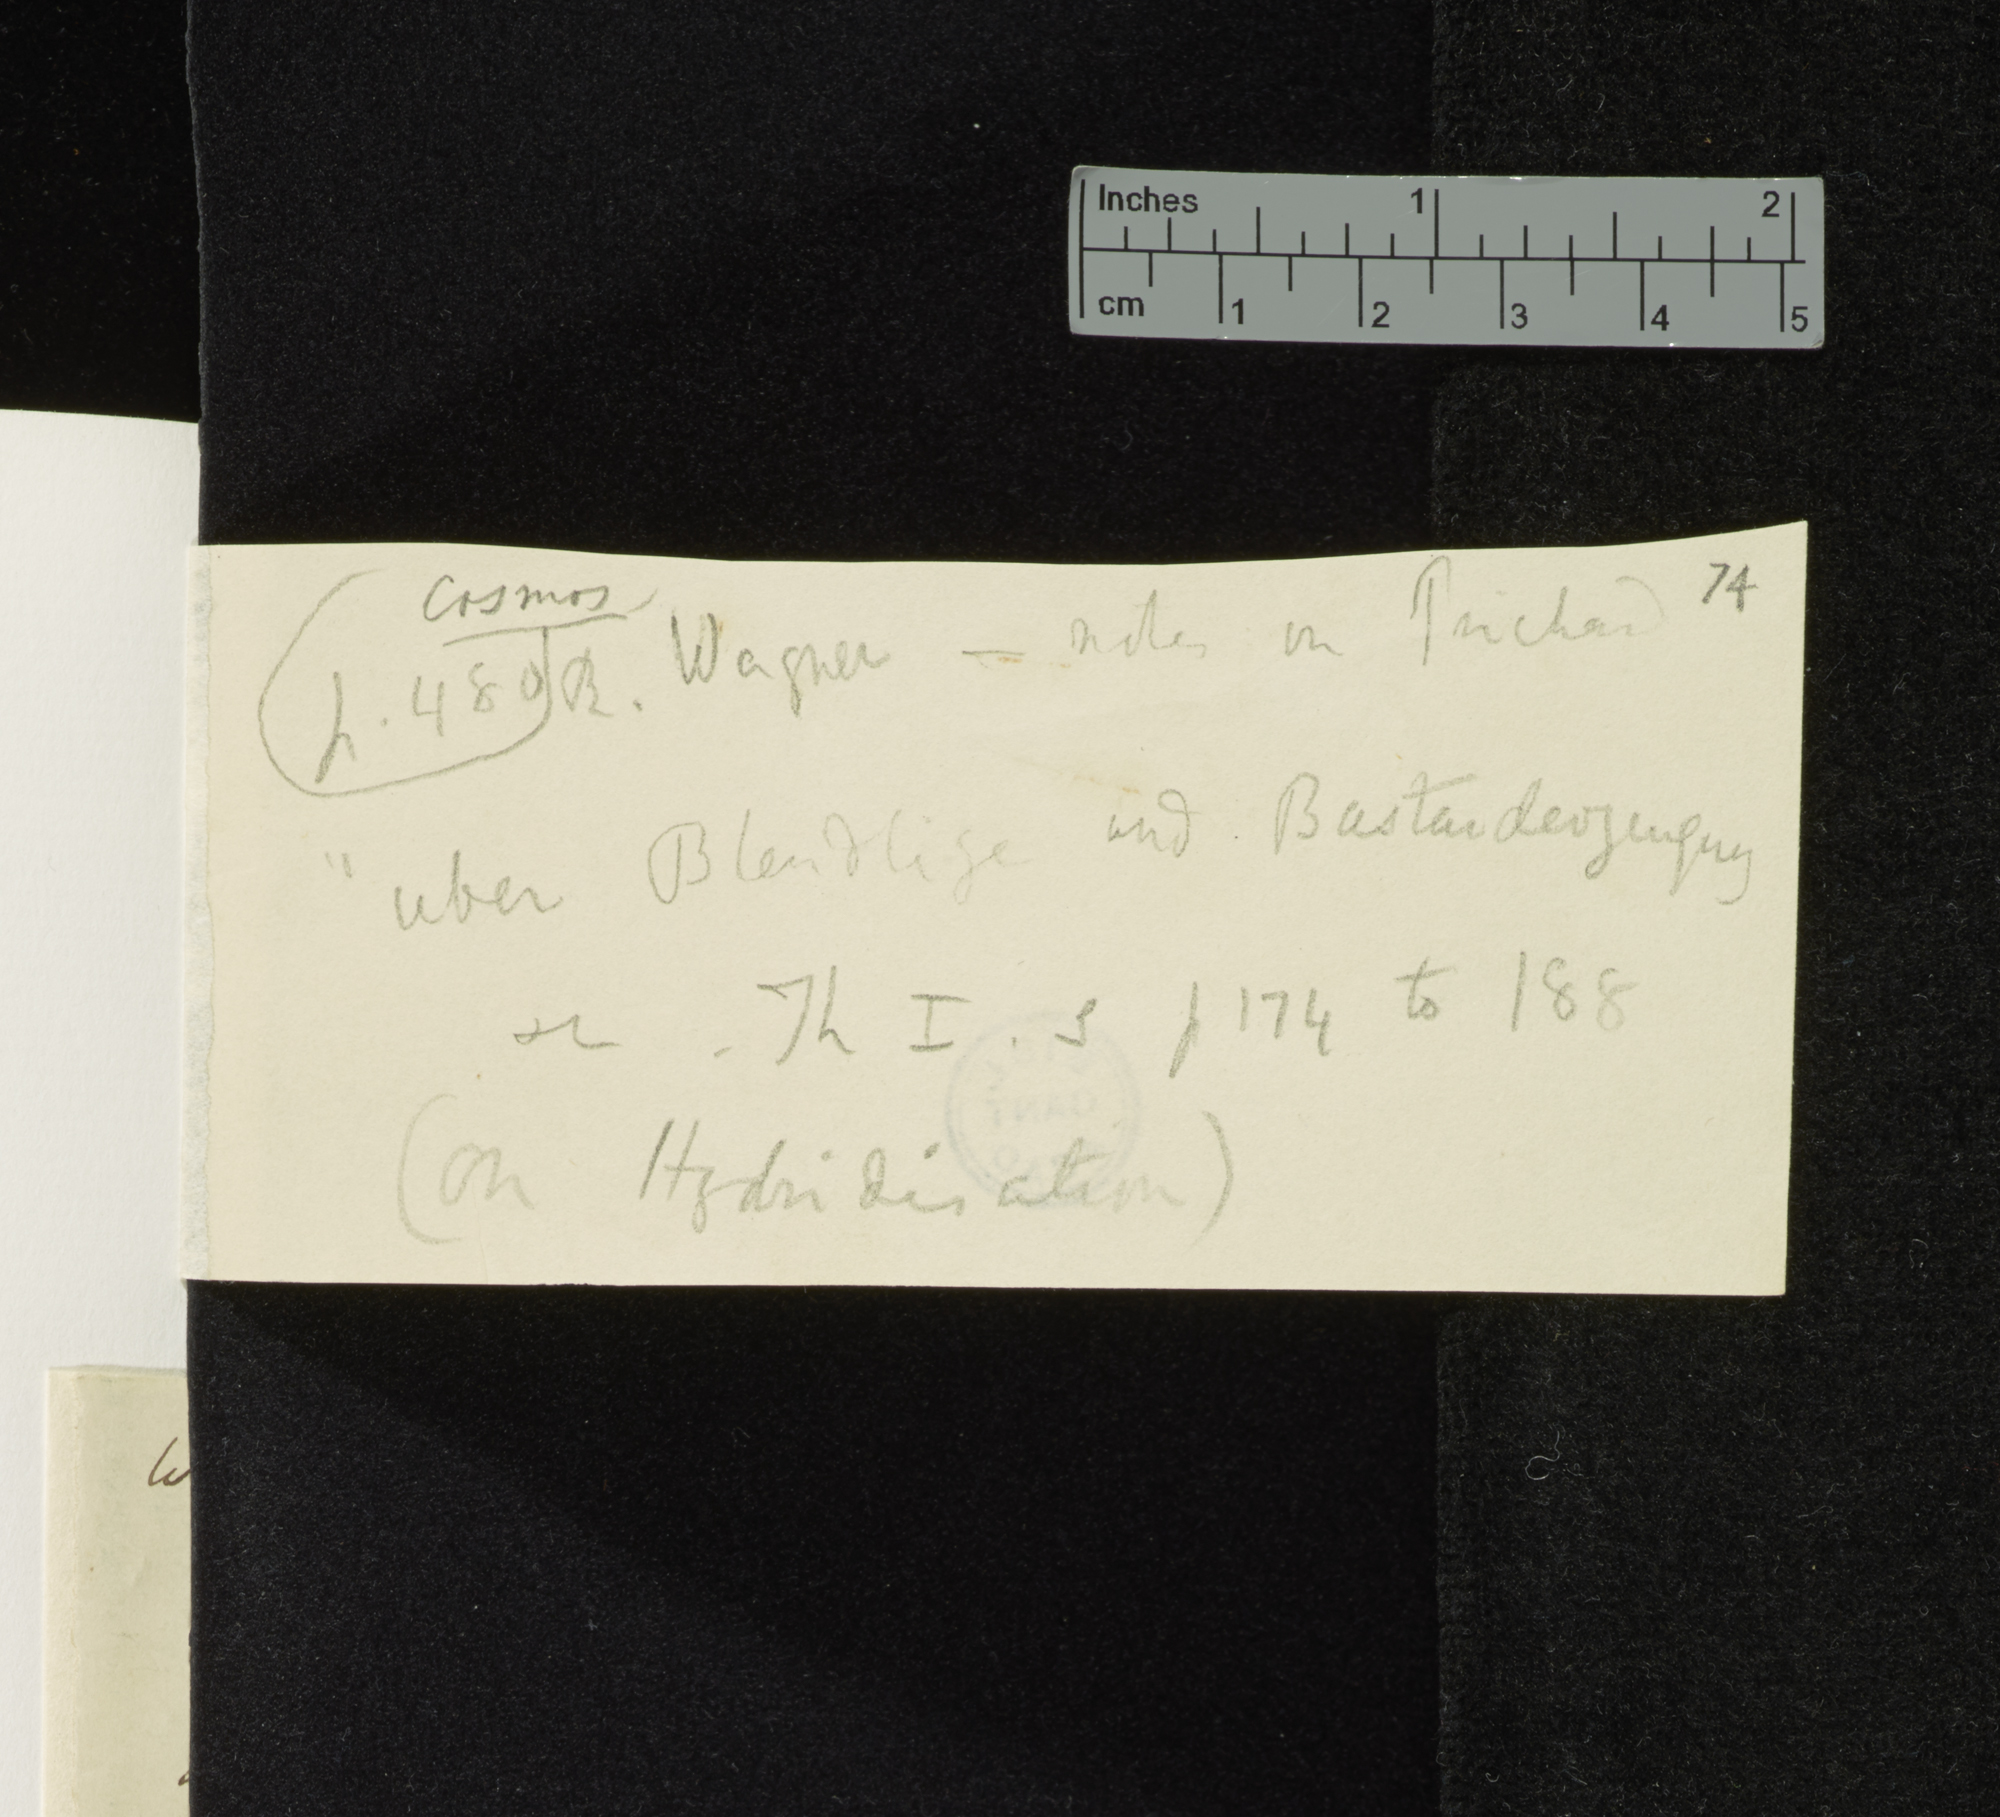 Inches 1 2
cm 1 2 3 4 5
74
Cosmos
p. 480 R. Wagner — notes on Prichard
" uber Blendlige und Bastarderzeugung
Th I. S p 174 to 188
(on Hybridisation)